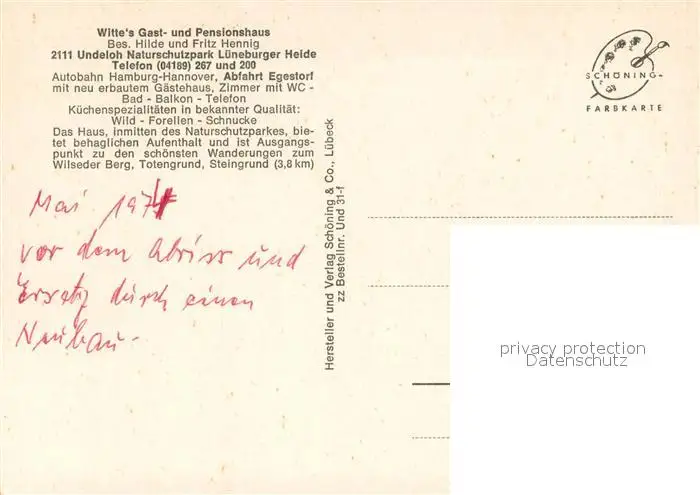 Witte's Gast- und Pensionshaus
Bes. Hilde und Fritz Hennig
2111 Undeloh Naturschutzpark Lüneburger Heide
Telefon (04189) 267 und 200
Autobahn Hamburg-Hannover, Abfahrt Egestorf
mit neu erbautem Gästehaus, Zimmer mit WC -
Bad - Balkon - Telefon
Küchenspezialitäten in bekannter Qualität:
Wild - Forellen - Schnucke
Das Haus, inmitten des Naturschutzparkes, bie-
tet behaglichen Aufenthalt und ist Ausgangs-
punkt zu den schönsten Wanderungen zum
Wilseder Berg, Totengrund, Steingrund (3,8 km)
Mai 1974
vor dem Abriss und
Ersatz durch einen
Neubau -
Hersteller und Verlag Schöning & Co., Lübeck
zz Bestellnr. Und 31-f
SCHÖNING-
FARBKARTE
privacy protection
Datenschutz